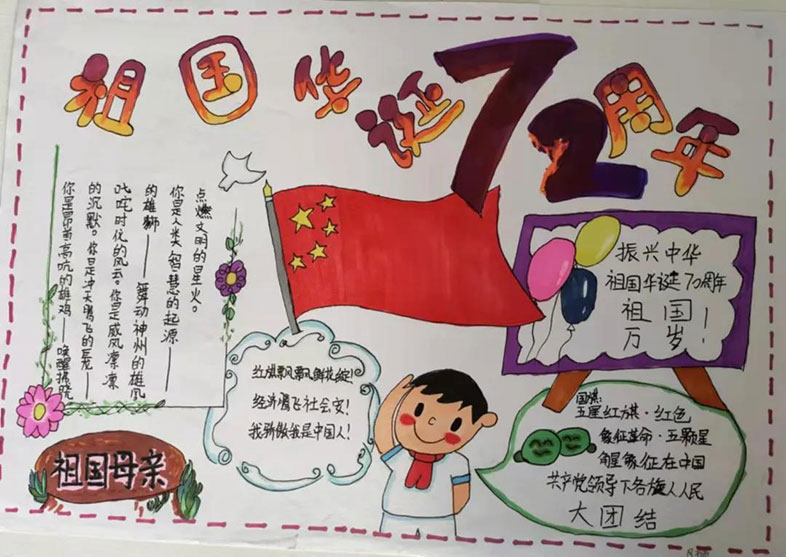 祖国华诞72周年
你是昂首高吭的雄鸡——唤醒拂晓
的沉默。你是冲天腾飞的巨龙——
叱咤时代的风云。你是威风凛凛
的雄狮——舞动神州的雄风
你是人类智慧的起源——
点燃文明的星火。
振兴中华
祖国华诞70周年
祖国
万岁！
红旗飘飘鲜花绽！
经济腾飞社会安！
我骄傲我是中国人！
国旗：
五星红旗·红色
象征革命·五颗星
角星象征在中国
共产党领导下各族人人民
大团结
祖国母亲